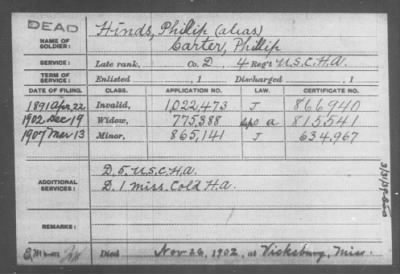 DEAD
NAME OF SOLDIER: Hinds, Phillip (alias)
Carter, Phillip
SERVICE: Late rank, Co. D 4 Reg't U.S.C.H.A.
TERM OF SERVICE: Enlisted , 1 Discharged , 1
DATE OF FILING. CLASS. APPLICATION NO. LAW. CERTIFICATE NO.
1891 Apr. 22 Invalid, 1,022,473 J 866940
1902 Dec 19 Widow, 775,388 a 815541
1907 Mar 13 Minor, 865,141 J 634,967
ADDITIONAL SERVICES: D. 5. U.S.C.H.A.
D. 1 Miss. Cold H.A.
REMARKS:
Died Nov 26, 1902, at Vicksburg, Miss.